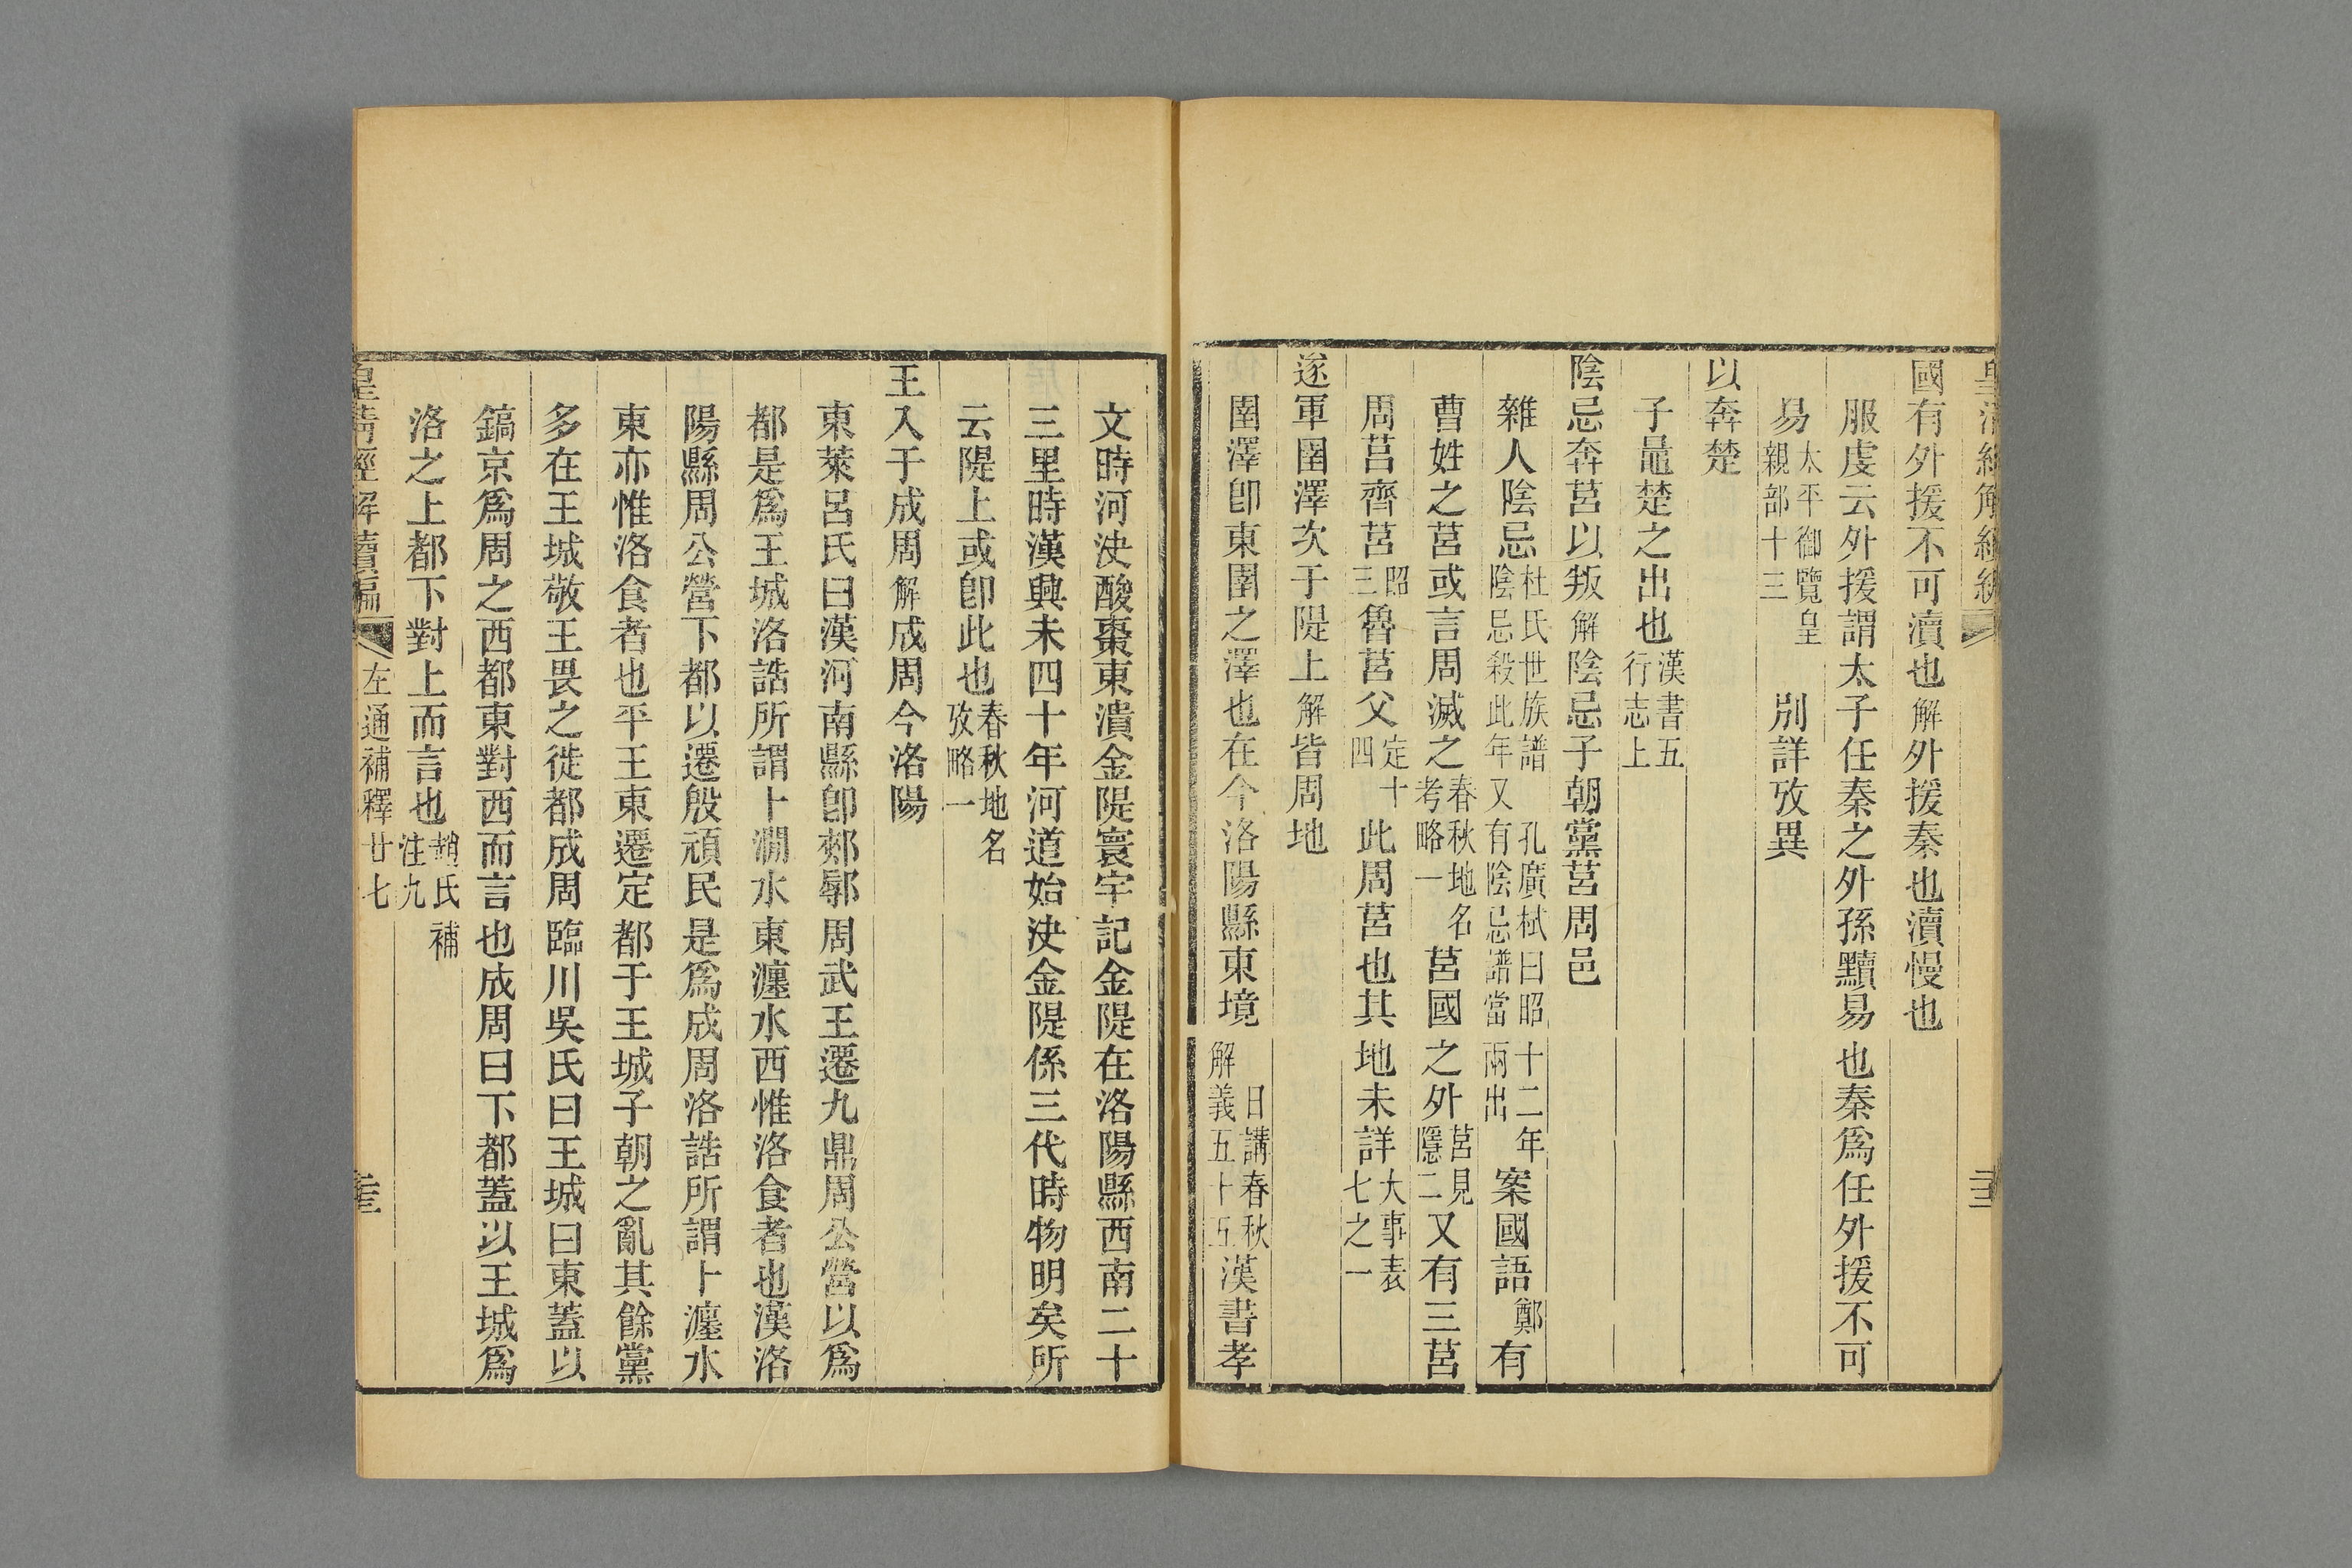 皇清經解續編
國有外援不可瀆也解外援秦也瀆慢也
服虔云外援謂太子任秦之外孫黷易也秦爲任外援不可
易太平御覽皇親部十三別詳攷異
以奔楚
子鼂楚之出也漢書五行志上
陰忌奔莒以叛解陰忌子朝黨莒周邑
雜人陰忌杜氏世族譜陰忌殺此年又有陰忌譜當兩出孔廣栻曰昭十二年案國語鄭有
曹姓之莒或言周滅之春秋地名考略一莒國之外莒見隱二又有三莒
周莒齊莒昭三魯莒父定十四此周莒也其地未詳大事表七之一
遂軍圉澤次于隄上解皆周地
圉澤卽東圉之澤也在今洛陽縣東境日講春秋解義五十五漢書孝
文時河決酸棗東潰金隄寰宇記金隄在洛陽縣西南二十
三里時漢興未四十年河道始決金隄係三代時物明矣所
云隄上或卽此也春秋地名攷略一
王入于成周解成周今洛陽
東萊呂氏曰漢河南縣卽郟鄏周武王遷九鼎周公營以爲
都是爲王城洛誥所謂卜澗水東瀍水西惟洛食者也漢洛
陽縣周公營下都以遷殷頑民是爲成周洛誥所謂卜瀍水
東亦惟洛食者也平王東遷定都于王城子朝之亂其餘黨
多在王城敬王畏之徙都成周臨川吳氏曰王城曰東蓋以
鎬京爲周之西都東對西而言也成周曰下都蓋以王城爲
洛之上都下對上而言也趙氏補注九
皇清經解續編 左通補釋廿七